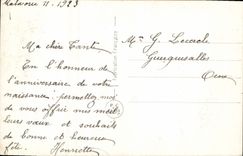 11. 1923
Ma chère Tante
En l'honneur de
l'anniversaire de votre
naissance permettez moi
de vous offrir mes meil
leurs vœux et souhaits
de bonne et heureuse
fête. Henriette
Mme G. Lecercle
Guiguesalles
Oise